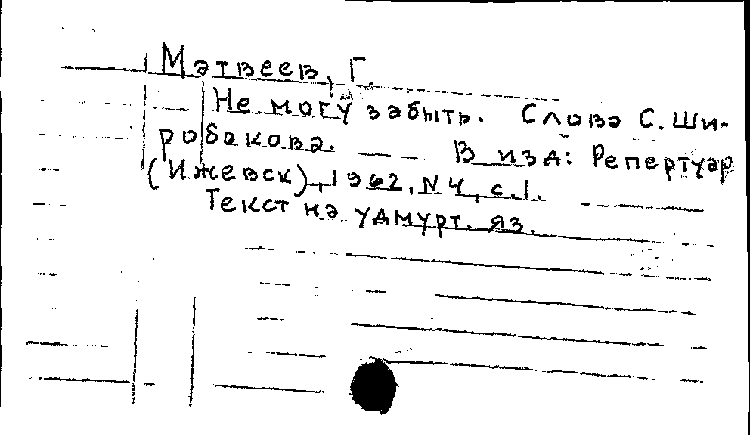 Матвеев, Г.
Не могу забыть. Слова С. Ши-
робокова. В изд: Репертуар
(Ижевск), 1962, N 4, с.1.
Текст на удмурт. яз.